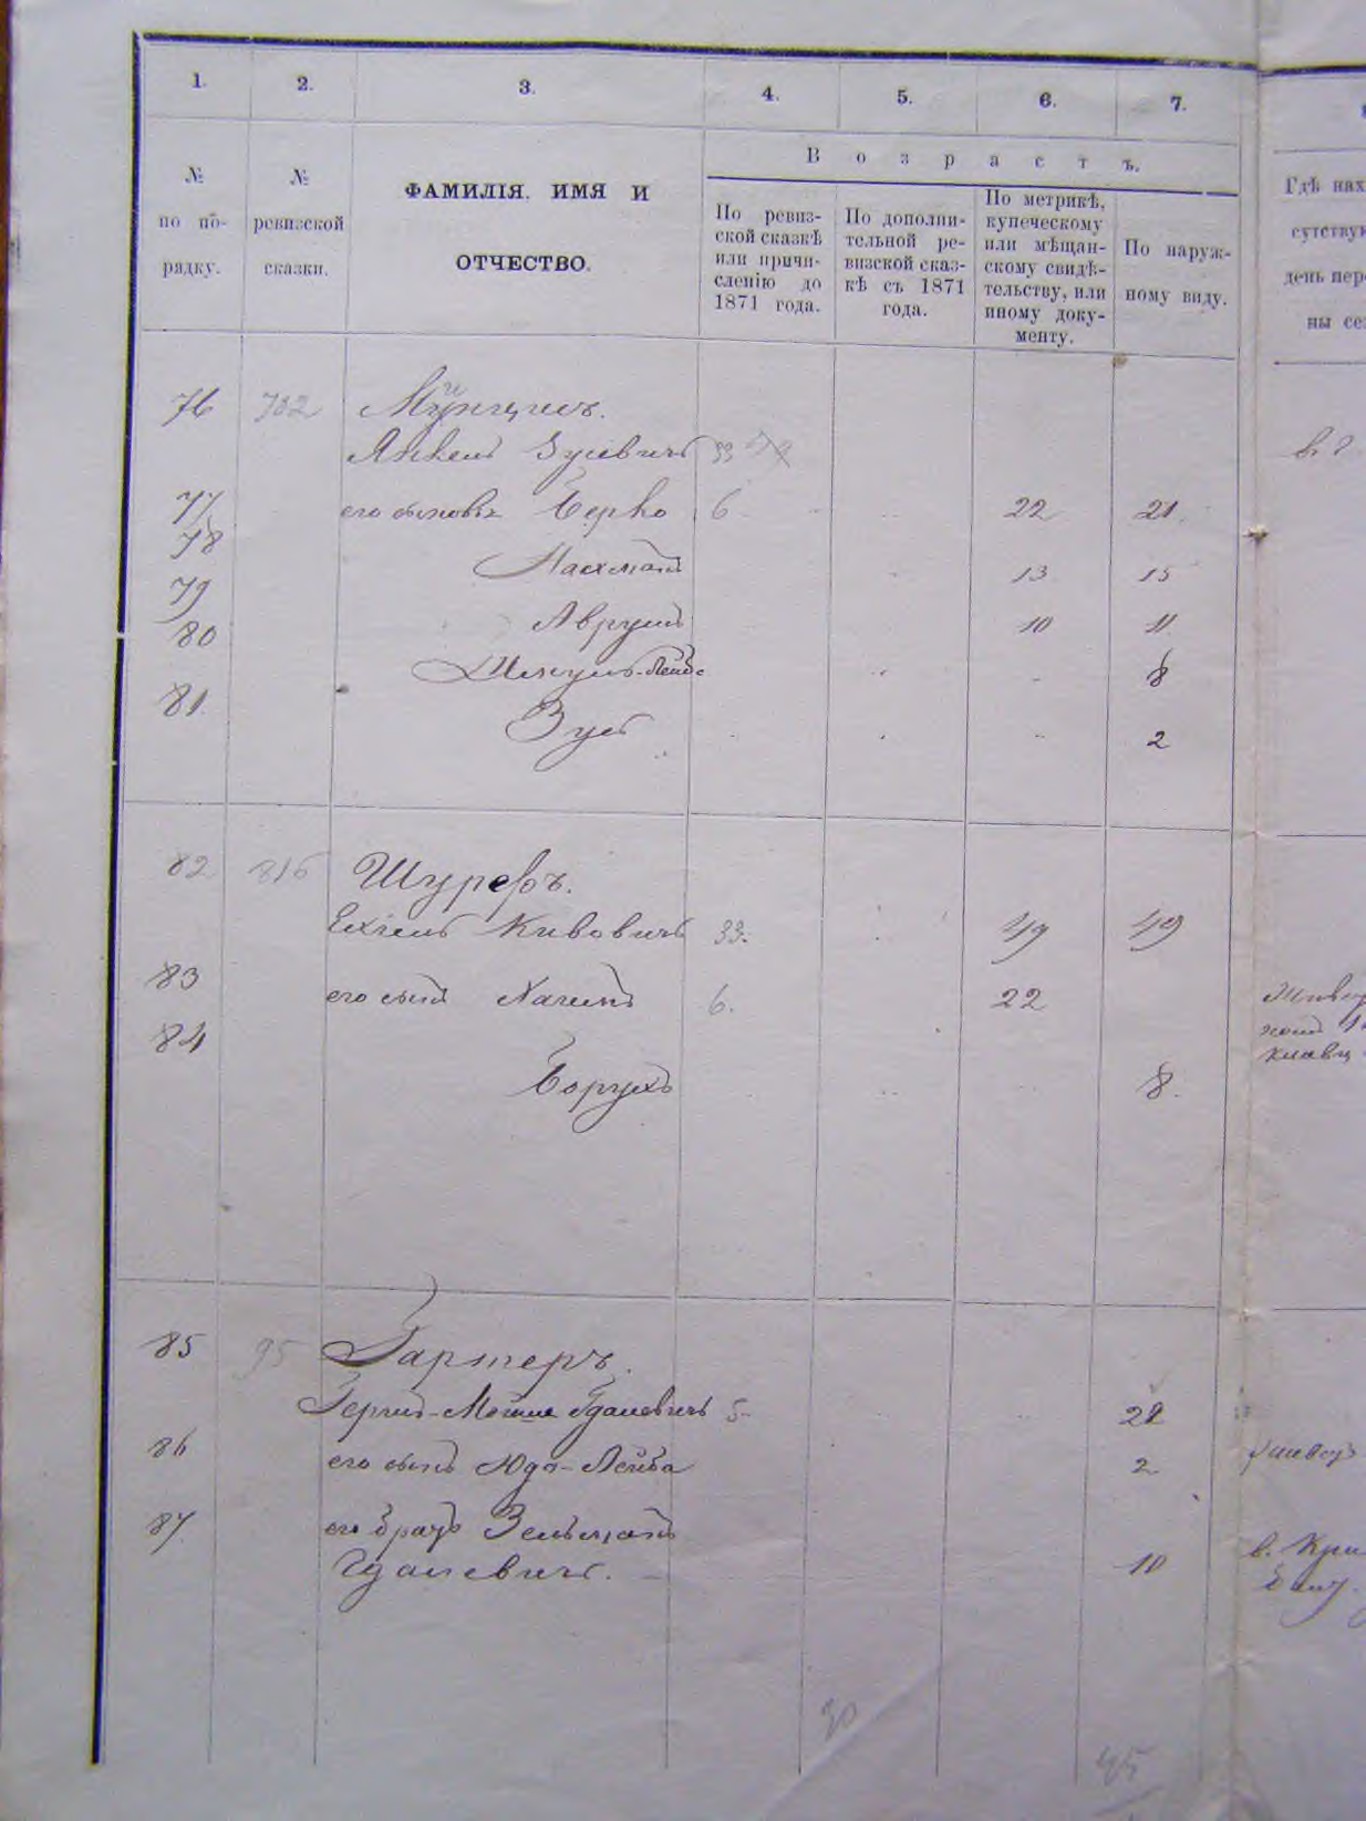 1. 2. 3. 4. 5. 6. 7.
№ по по-рядку.
№ ревизской сказки.
ФАМИЛІЯ, ИМЯ И
ОТЧЕСТВО.
Возрастъ.
По ревиз-
ской сказкѣ
или причи-
сленію до
1871 года.
По дополни-
тельной ре-
визской сказ-
кѣ съ 1871
года.
По метрикѣ,
купеческому
или мѣщан-
скому свидѣ-
тельству, или
иному доку-
менту.
По наруж-
ному виду.
Гдѣ нах
сутствую
день пер
ны се
76 702
Янкель Зусевичъ 33
77 его сыновья Берко 6 22 21
78 Нахманъ 13 15
79 Аврумъ 10 11
80 Шмуль-Лейб 8
81 Зусь 2
82 816 Шуреръ.
Ехіель Кивовичъ 33. 49 49
83 его сынъ Хаимъ 6. 22
84 Борухъ 8.
85 95 Гартеръ.
Гершъ-Мойше Гдалевичъ 5 28
86 его сынъ Юда-Лейба 2
87 его братъ Зельманъ
Гдалевичъ. 10
в. Кри
30
45